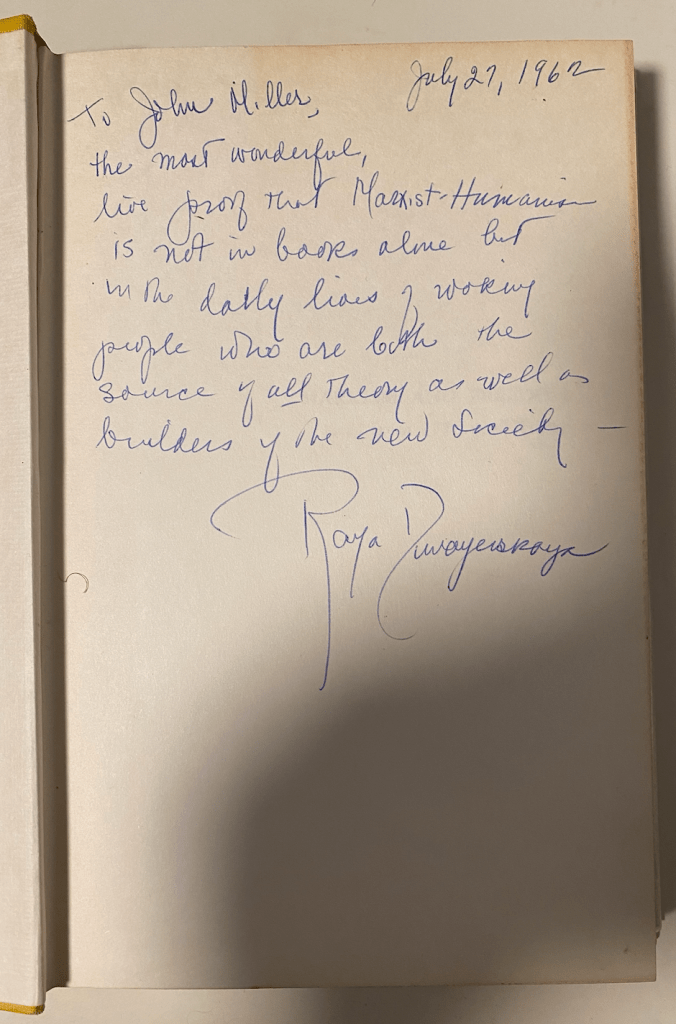 To John Miller, July 27, 1962
the most wonderful,
live proof that Marxist-Humanism
is not in books alone but
in the daily lives of working
people who are both the
source of all theory as well as
builders of the new Society —
Raya Dunayevskaya